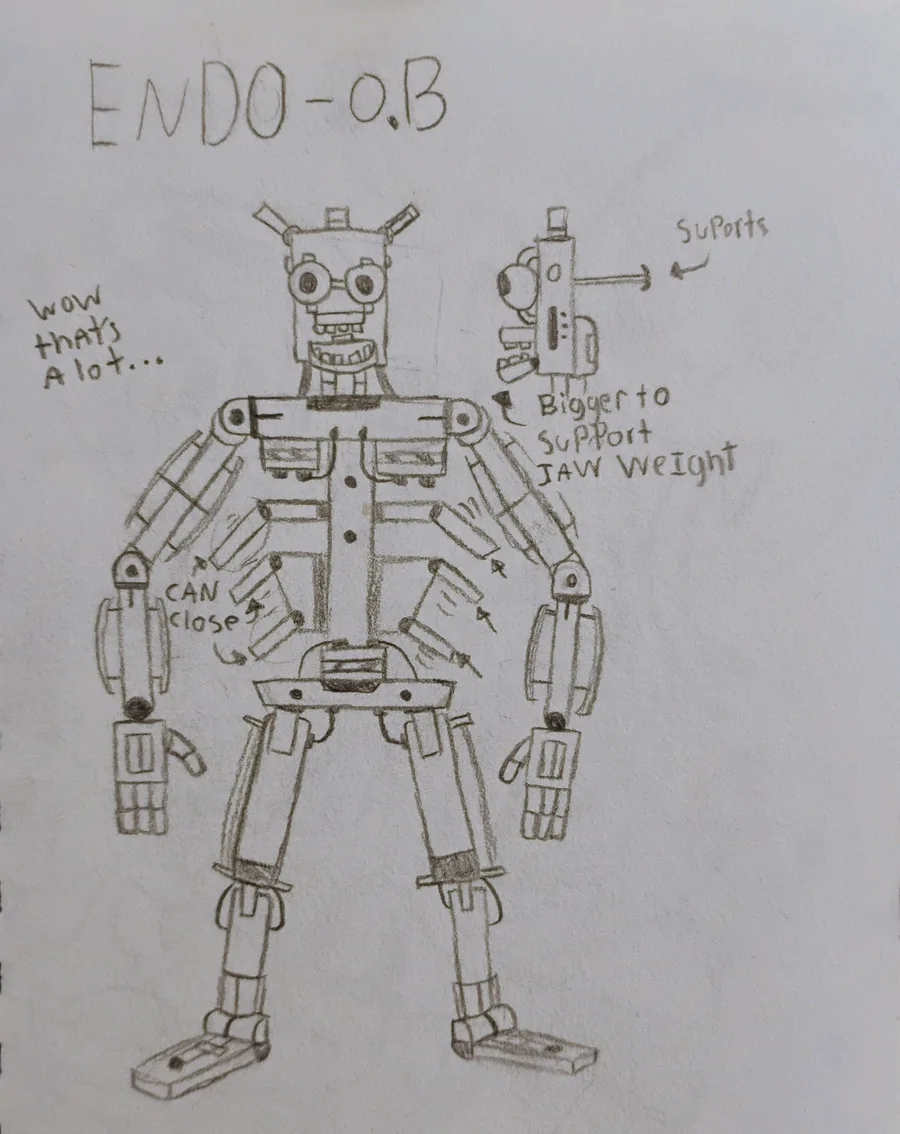 ENDO-O.B
SuPorts
wow
that's
A lot...
Bigger to
SuPPort
JAW weIght
CAN
close